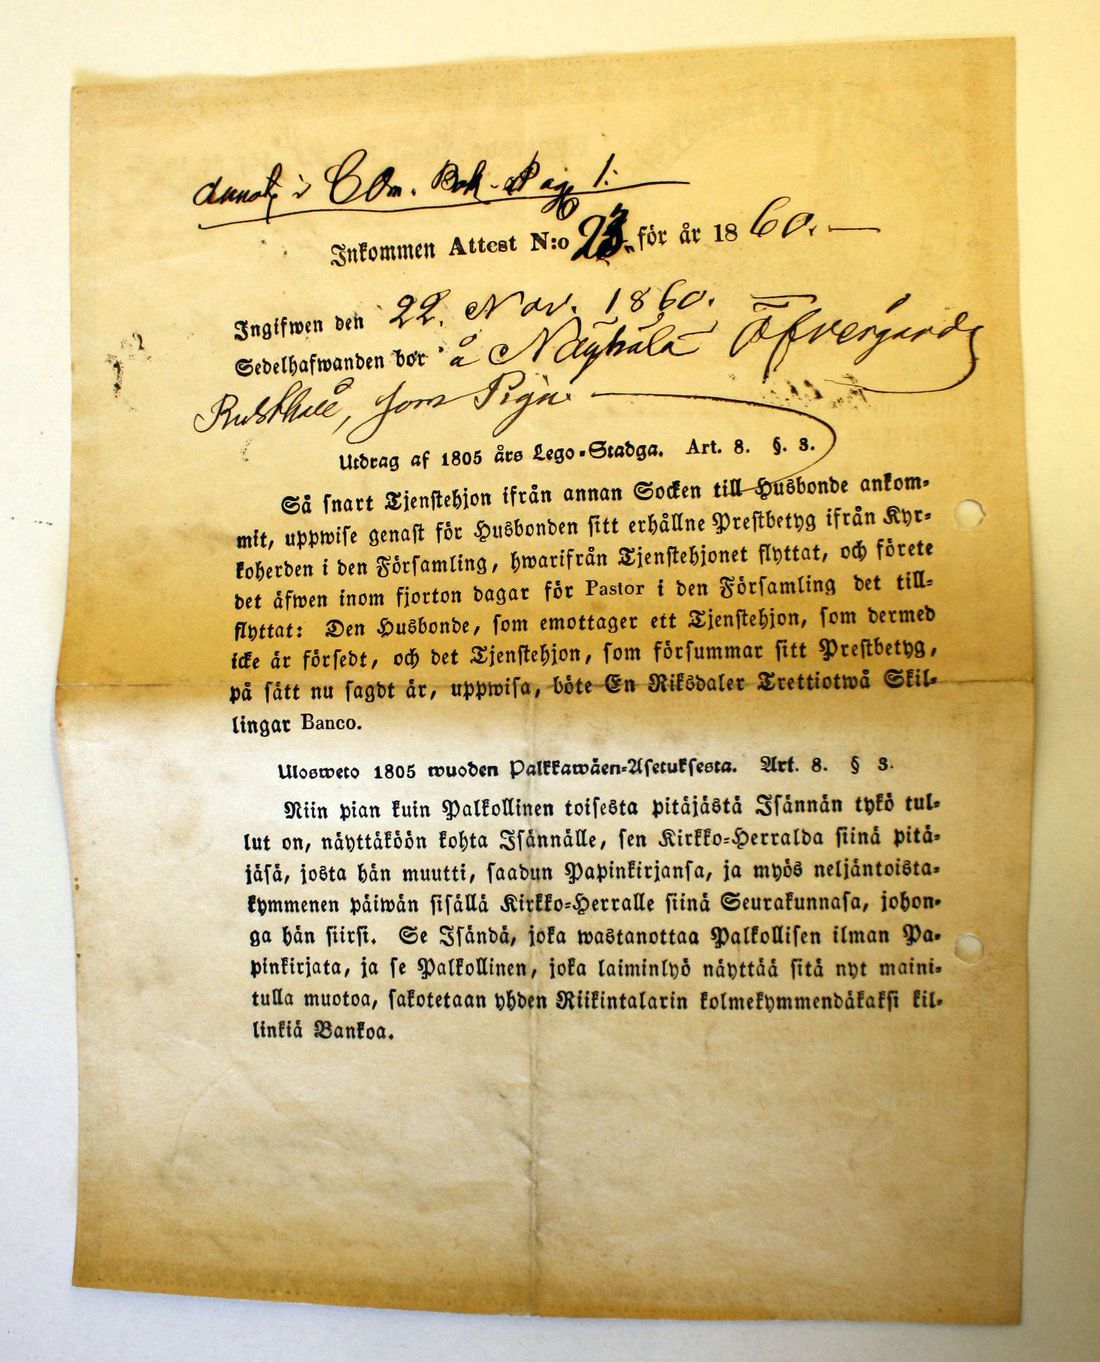 Annot. i COm. Bok. Pag 1:
Inkommen Attest N:o 23. för år 1860.
Ingifwen den 22. Nov. 1860.
Sedelhafwanden bor å Näyhälä Öfvergårds
Rusthåll, som Piga.
Utdrag af 1805 års Lego-Stadga. Art. 8. §. 3.
Så snart Tjenstehjon ifrån annan Socken till Husbonde ankom-
mit, uppwise genast för Husbonden sitt erhållne Prestbetyg ifrån Kyr-
koherden i den Församling, hwarifrån Tjenstehjonet flyttat, och förete
det äfwen inom fjorton dagar för Pastor i den Församling det till-
flyttat: Den Husbonde, som emottager ett Tjenstehjon, som dermed
icke är försedt, och det Tjenstehjon, som försummar sitt Prestbetyg,
på sätt nu sagdt är, uppwisa, böte En Riksdaler Trettiotwå Skil-
lingar Banco.
Ulosweto 1805 wuoden Palkkawäen-Asetuksesta. Art. 8. § 3.
Niin pian kuin Palkollinen toisesta pitäjästä Isännän tykö tul-
lut on, näyttäköön kohta Isännälle, sen Kirkko-Herralda siinä pitä-
jäsä, josta hän muutti, saadun Papinkirjansa, ja myös neljäntoista-
kymmenen päiwän sisällä Kirkko-Herralle siinä Seurakunnasa, johon-
ga hän siirsi. Se Isändä, joka wastanottaa Palkollisen ilman Pa-
pinkirjata, ja se Palkollinen, joka laiminlyö näyttää sitä nyt maini-
tulla muotoa, sakotetaan yhden Riikintalarin kolmekymmendäkaksi kil-
linkiä Bankoa.